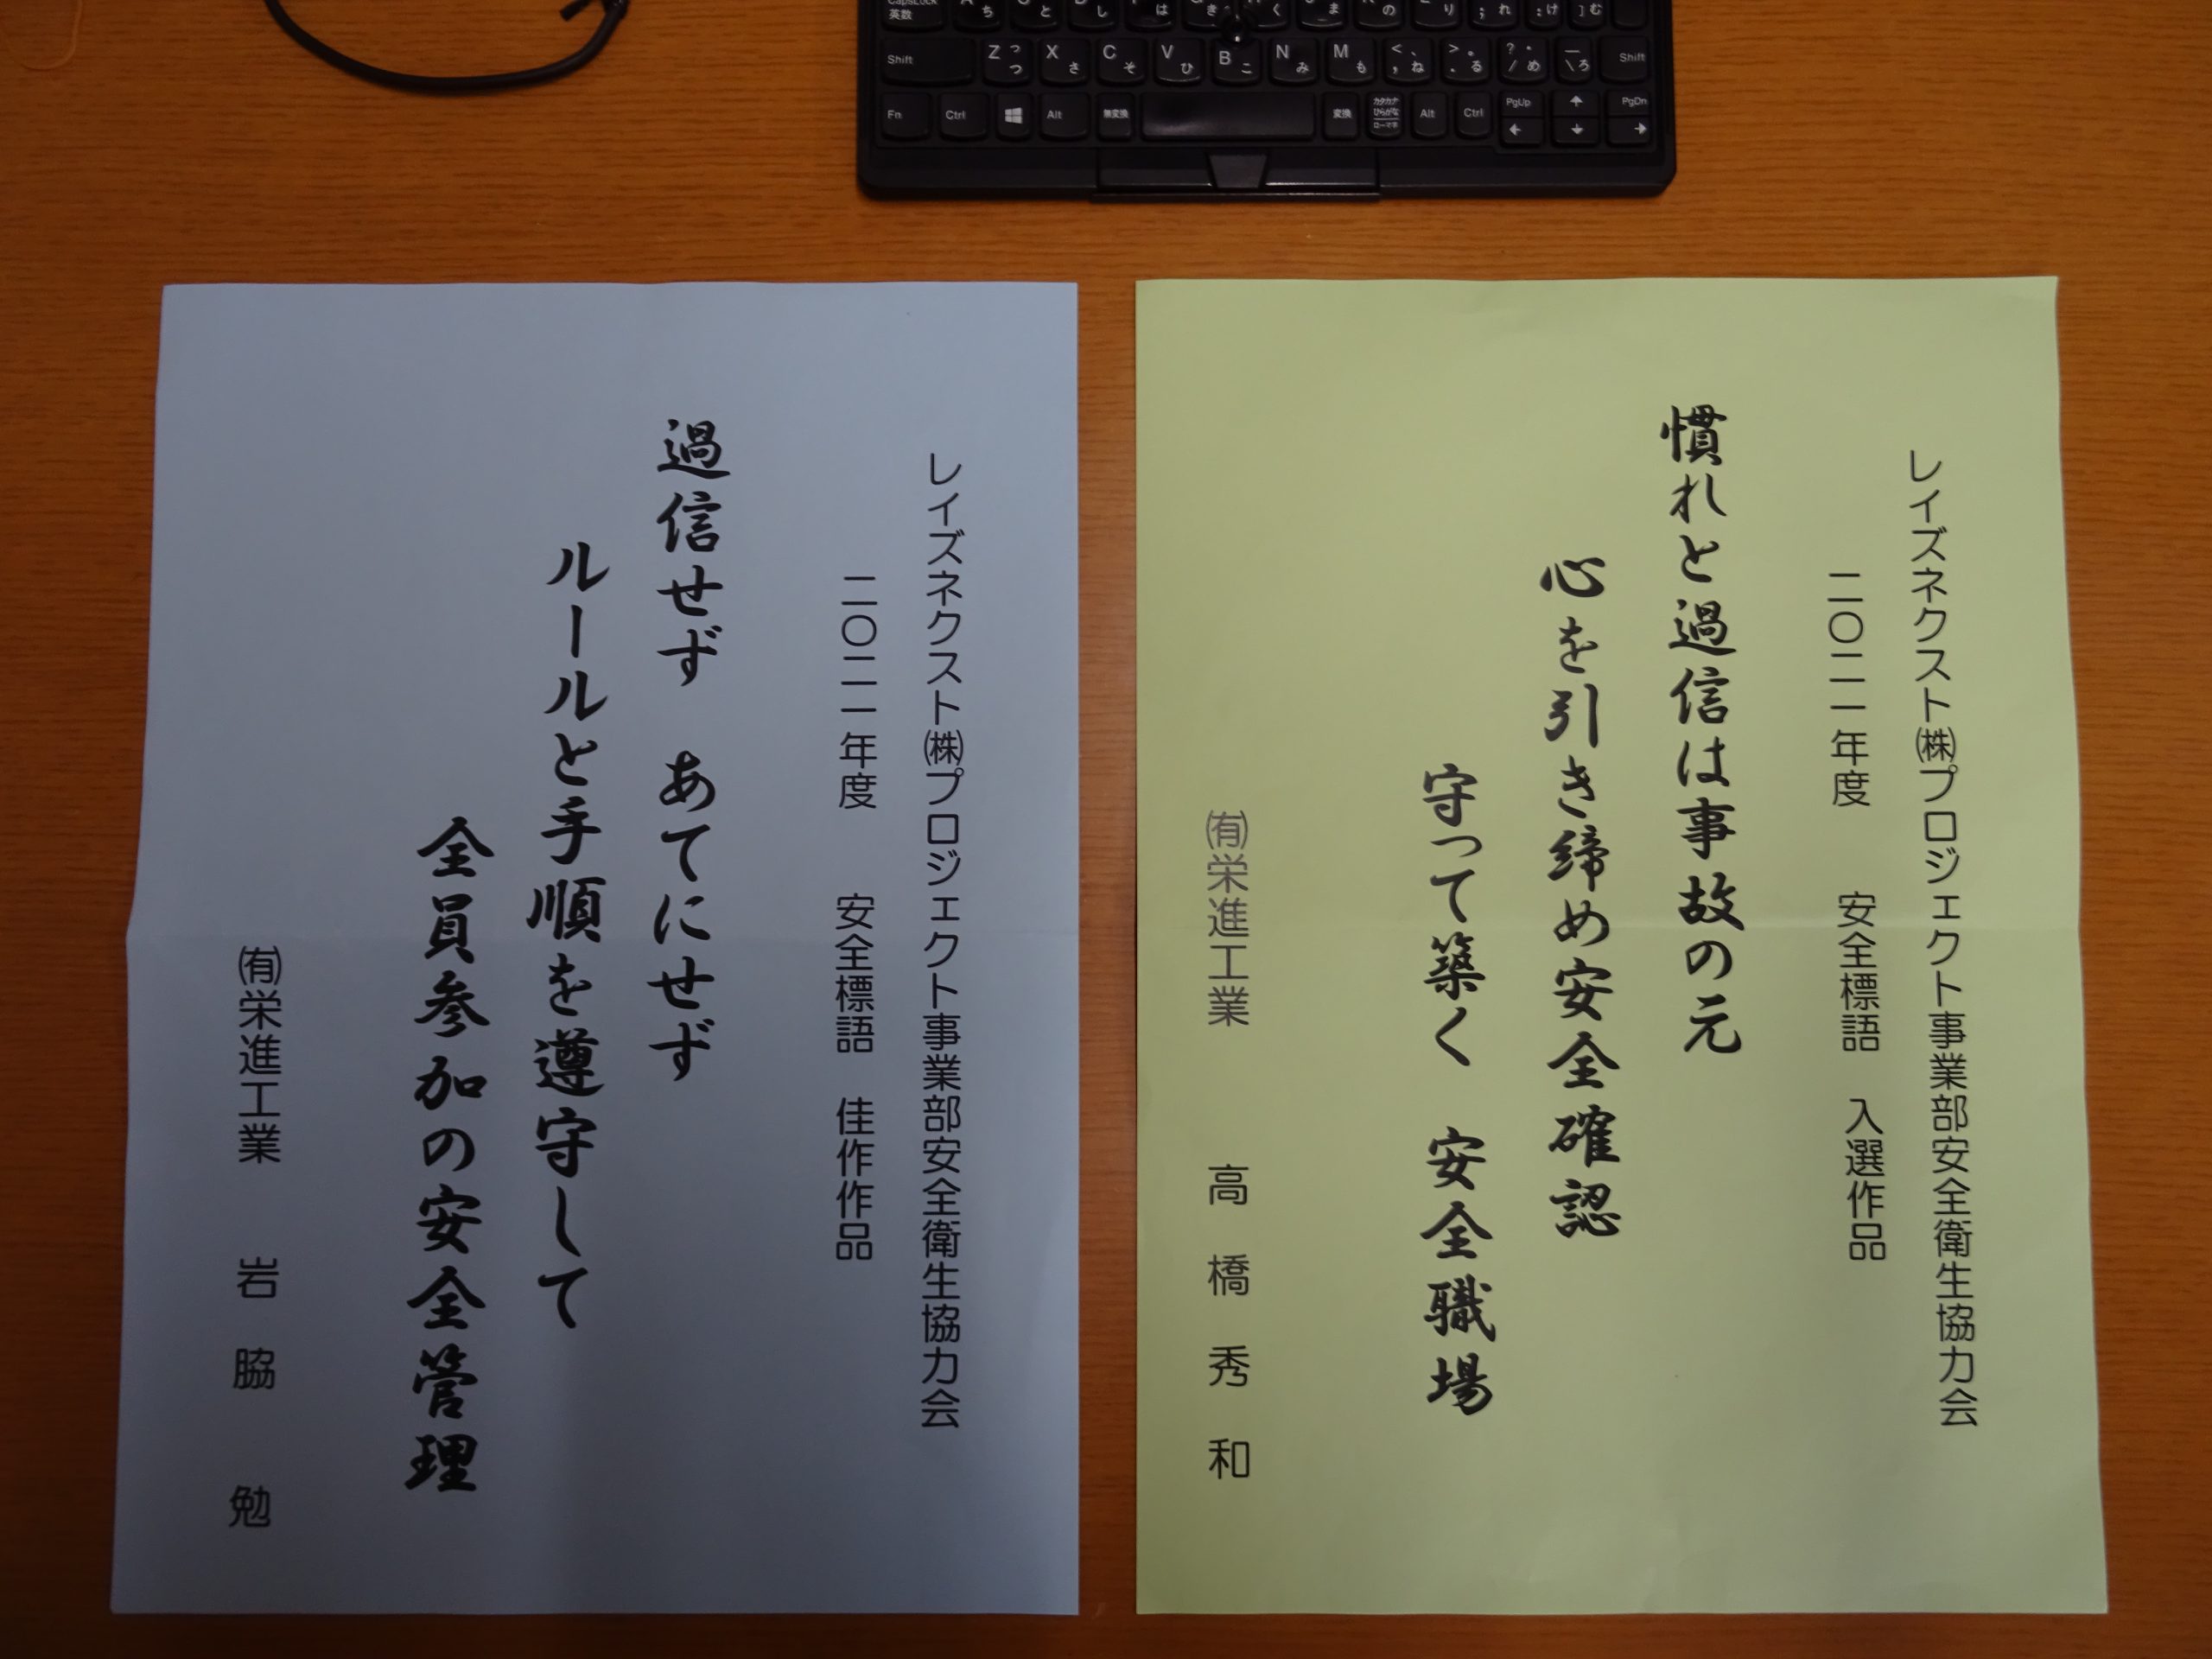 CapsLock
英数
ち と し は き く ま の り ; れ : け ] む
Shift Z っ つ X さ C そ V ひ B こ N み M も < 、 , ね > 。 . る ? ・ / め _ \ ろ Shift
Fn Ctrl Alt 無変換 変換 カタカナ ひらがな ローマ字 Alt Ctrl PgUp ↑ PgDn
← ↓ →
レイズネクスト㈱プロジェクト事業部安全衛生協力会
二〇二一年度 安全標語 入選作品
慣れと過信は事故の元
心を引き締め安全確認
守って築く 安全職場
㈲栄進工業 高橋秀和
レイズネクスト㈱プロジェクト事業部安全衛生協力会
二〇二一年度 安全標語 佳作作品
過信せず あてにせず
ルールと手順を遵守して
全員参加の安全管理
㈲栄進工業 岩脇 勉